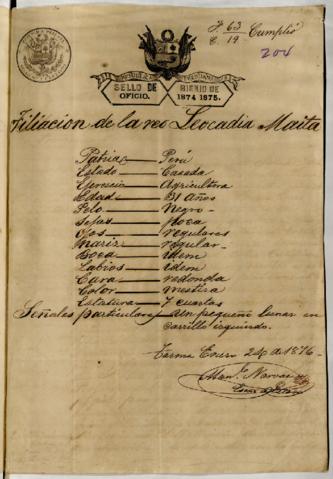 F. 63 Cumplió
C. 19
204
SELLO DE OFICIO.
BIENIO DE 1874 1875.
Filiacion de la reo Leocadia Maita
Patria — Perú
Estado — Casada
Ejercicio — Agricultora
Edad — 31 años
Pelo — Negro
Sejas — Poca
Ojos — regulares
Nariz — regular
Boca — idem
Labios — idem
Cara — redonda
Color — mestisa
Estatura — 7 cuartas
Señales particulares Un pequeño lunar en
carrillo izquierdo.
Tarma Enero 24 de 1876
Man.l Narvaez